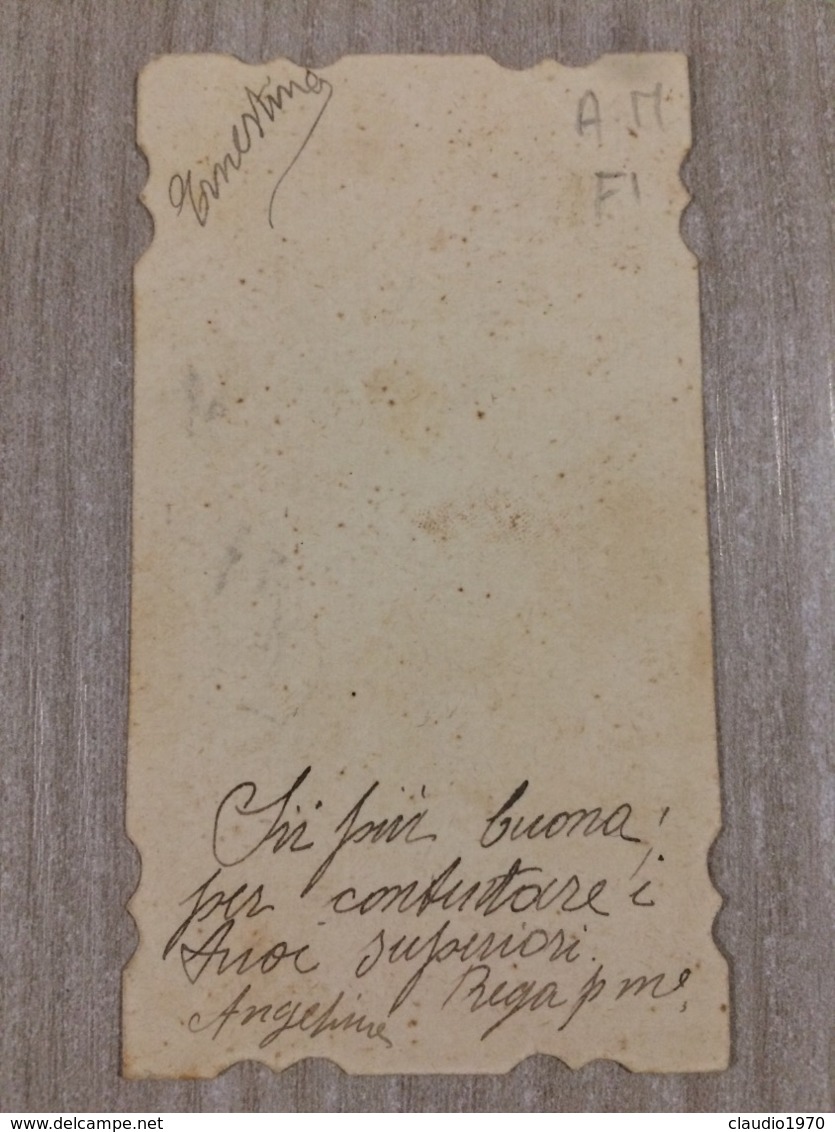 Ernestina
A M
F1
Sii più buona;
per contentare i
tuoi superiori.
Prega p me,
Angelina
claudio1970